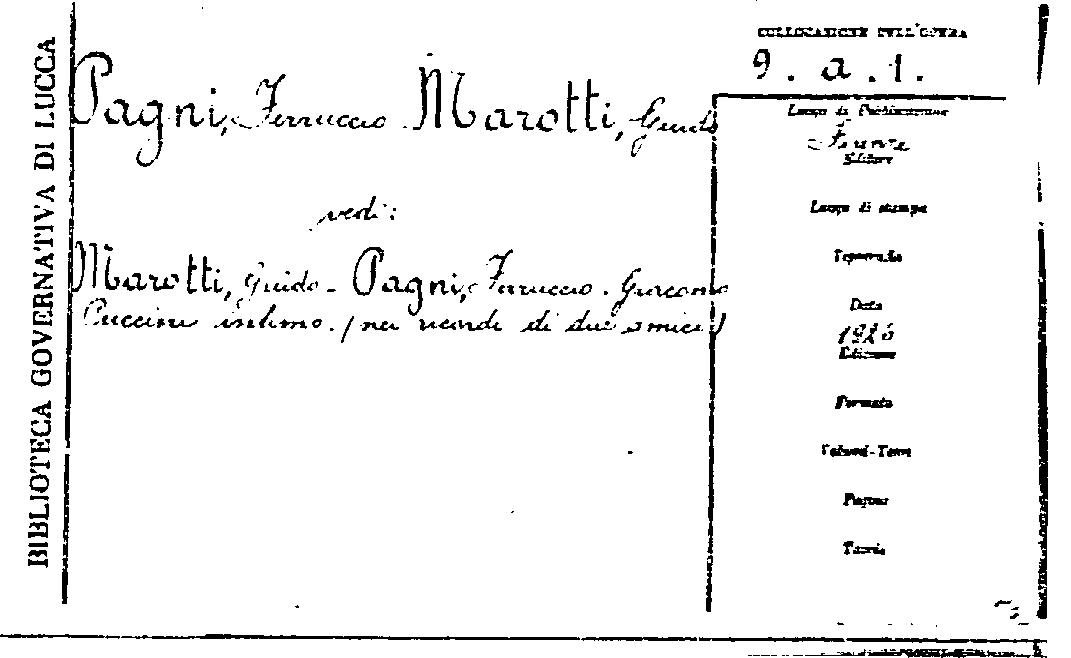 BIBLIOTECA GOVERNATIVA DI LUCCA
Pagni, Ferruccio Marotti, Guido
vedi:
Marotti, Guido - Pagni, Ferruccio. Giacomo
Puccini intimo. (nei ricordi di due amici)
COLLOCAZIONE DELL'OPERA
9. a. 1.
Luogo di Pubblicazione
Firenze
Editore
Luogo di stampa
Tipografia
Data
1926
Edizione
Formato
Volumi-Tomi
Pagine
Tavole